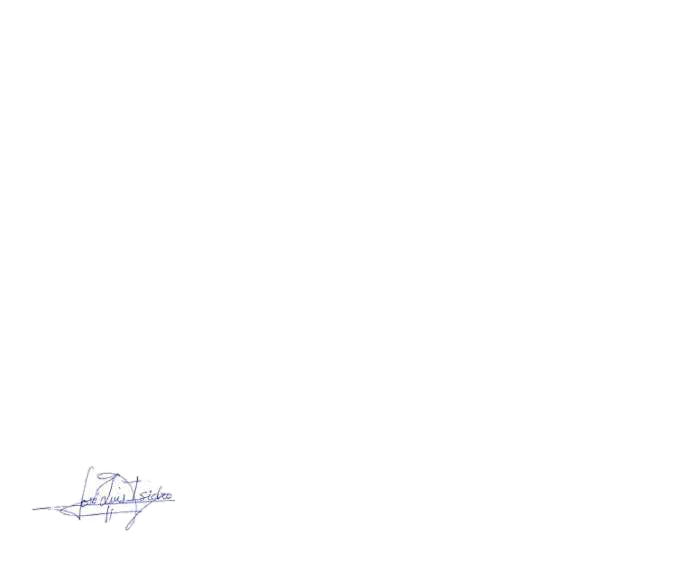 José Luis Isidro